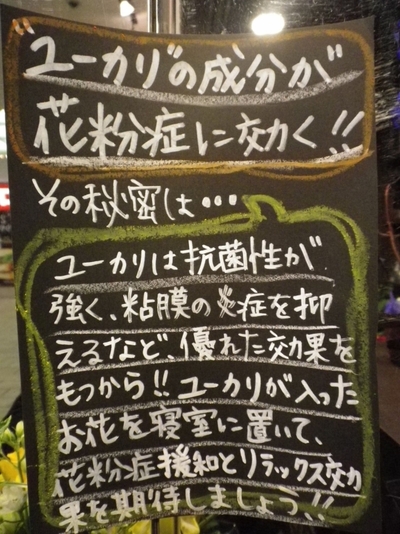 "ユーカリ"の成分が
花粉症に効く!!
その秘密は・・・
ユーカリは抗菌性が
強く、粘膜の炎症を抑
えるなど、優れた効果を
もつから!!ユーカリが入った
お花を寝室に置いて、
花粉症援和とリラックス効
果を期待しましょう!!